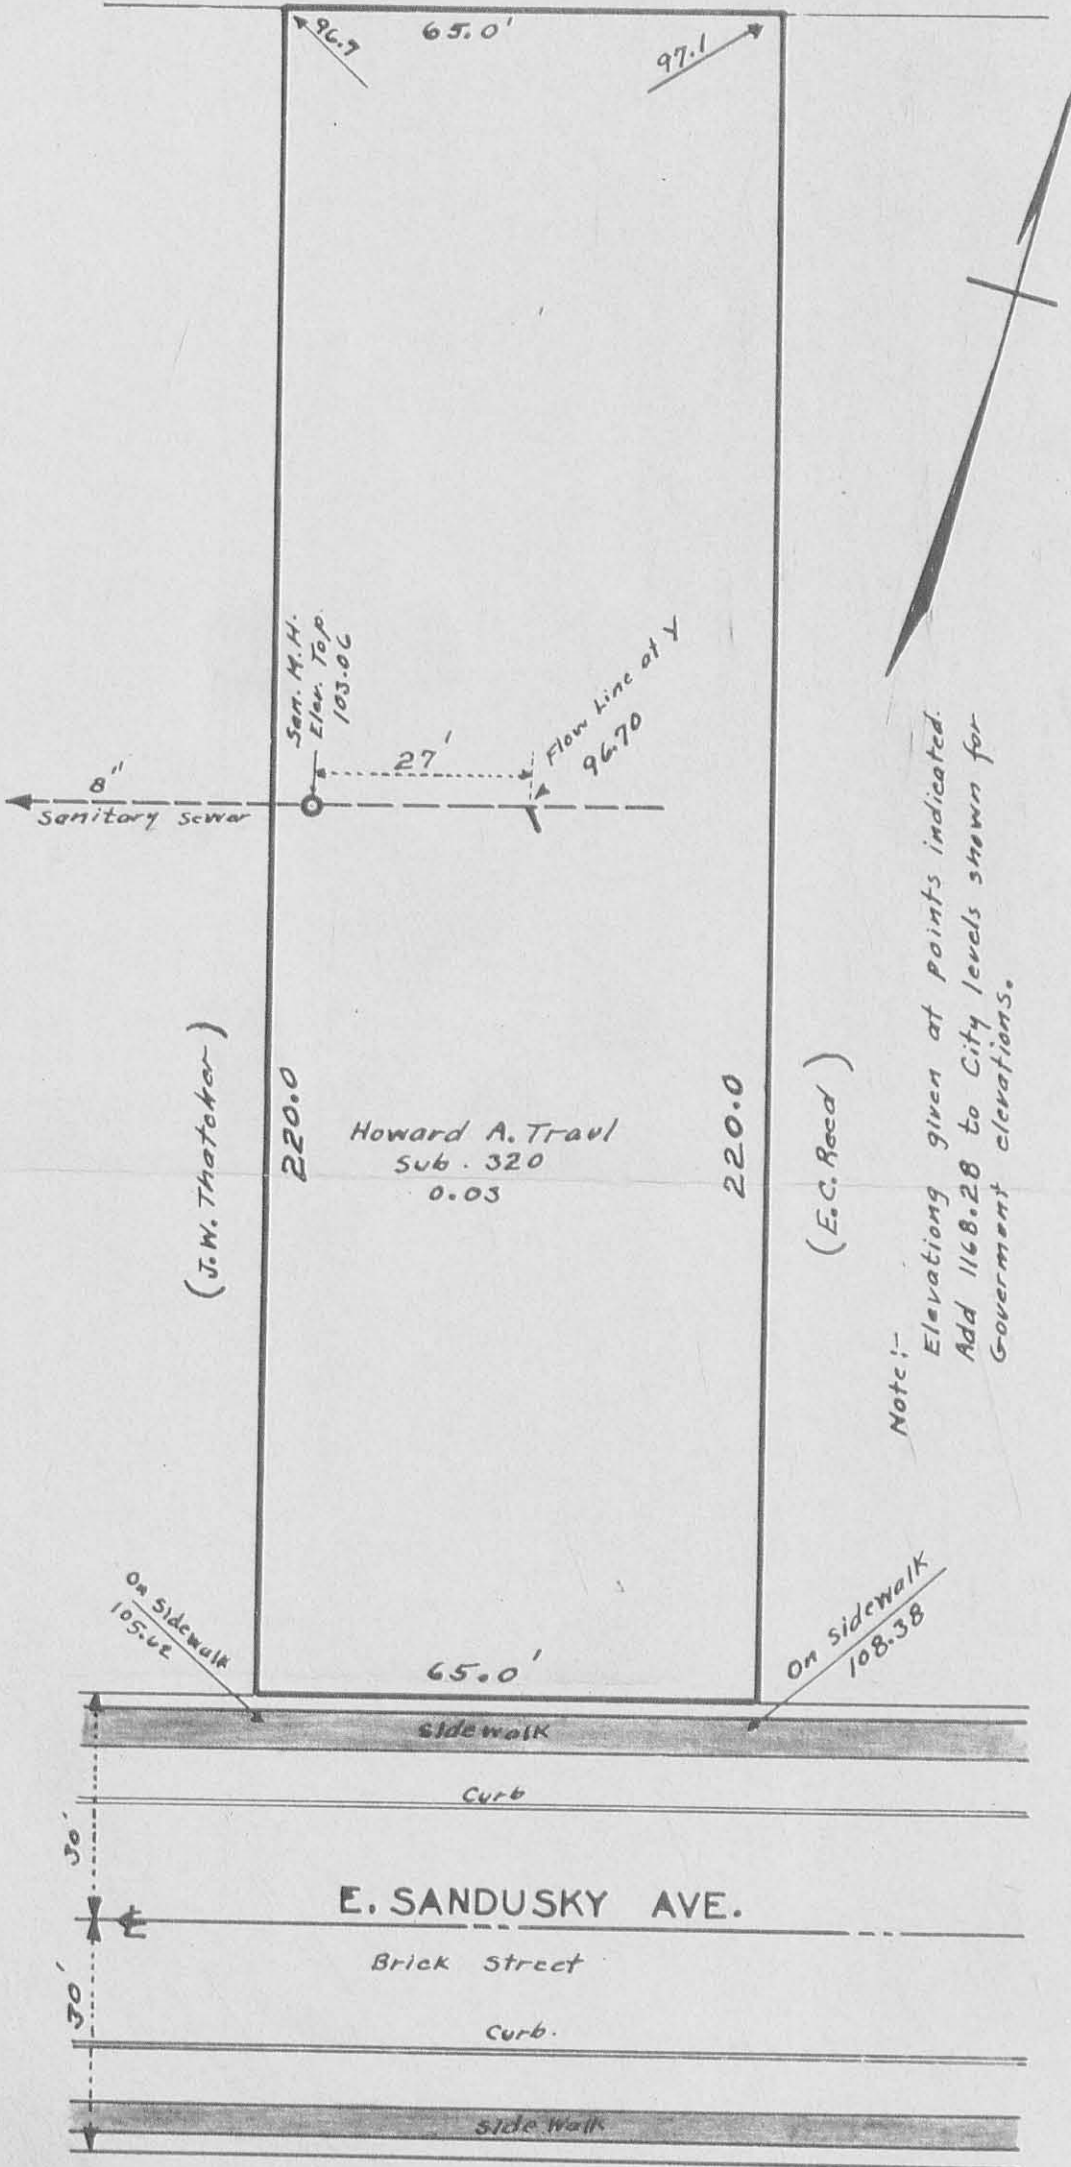 65.0'
96.7
97.1
San. M.H.
Elev. Top
103.06
27'
Flow Line at Y
96.70
8"
Sanitary Sewer
(J.W. Thatcher)
220.0
Howard A. Traul
Sub. 320
0.03
220.0
(E.C. Reed)
Note:-
Elevationg given at points indicated.
Add 1168.28 to City levels shown for
Goverment elevations.
On Sidewalk
105.62
65.0'
On Sidewalk
108.38
Sidewalk
Curb
30'
E. SANDUSKY AVE.
Brick Street
30'
Curb.
Side Walk